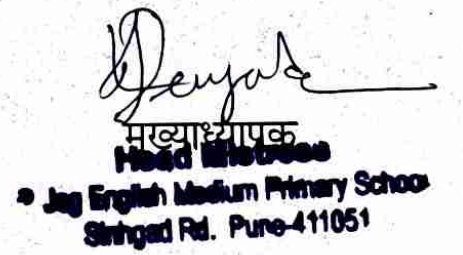 मुख्याध्यापक
Head Mistress
Jag English Medium Primary School
Sinhgad Rd. Pune-411051